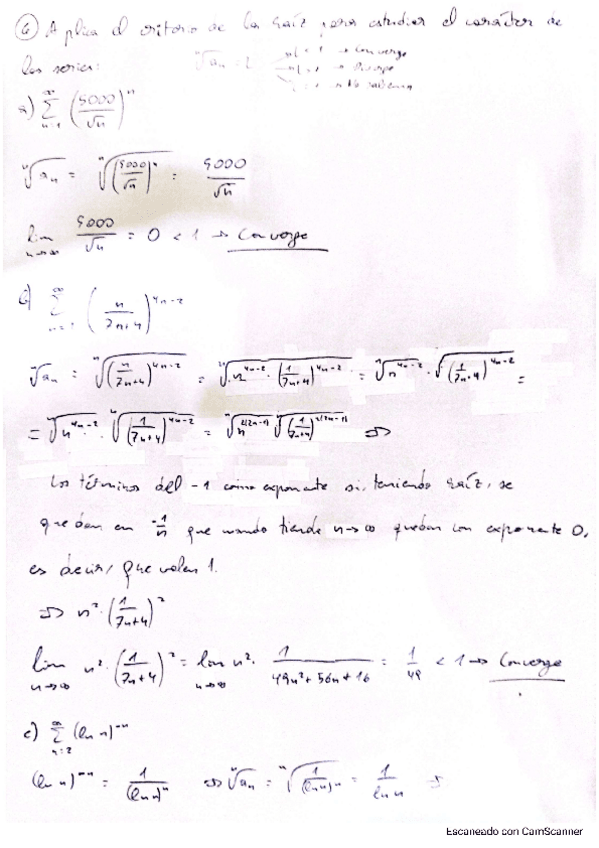 ⑥ Aplica el criterio de la raíz para estudiar el carácter de
las series:
ⁿ√aₙ = L → L < 1 → Converge
a) ∑_{n=1}^{∞} (5000/√n)^n
ⁿ√aₙ = ⁿ√((5000/√n)^n) = 5000/√n
lim_{n→∞} 5000/√n = 0 < 1 → Converge
b) ∑_{n=1}^{∞} (n/(7n+4))^{4n-2}
ⁿ√aₙ = ⁿ√((n/(7n+4))^{4n-2}) = ⁿ√(n^{4n-2} · (1/(7n+4))^{4n-2}) = ⁿ√(n^{4n-2}) · √((1/(7n+4))^{4n-2}) =
= ⁿ√(n^{4n-2}) · ⁿ√((1/(7n+4))^{4n-2}) = ⁿ√(n^{2(2n-1)}) ⁿ√((1/(7n+4))^{2(2n-1)}) ⇒
Los términos del -1 como exponente si, teniendo raíz, se
quedan en -1/n que cuando tiende n→∞ quedan con exponente 0,
es decir, que valen 1.
⇒ n² · (1/(7n+4))²
lim_{n→∞} n² · (1/(7n+4))² = lim_{n→∞} n² · 1/(49n²+56n+16) = 1/49 < 1 → Converge
c) ∑_{n=2}^{∞} (ln n)^{-n}
(ln n)^{-n} = 1/(ln n)^n ⇒ ⁿ√aₙ = ⁿ√(1/(ln n)^n) = 1/ln n ⇒
Escaneado con CamScanner